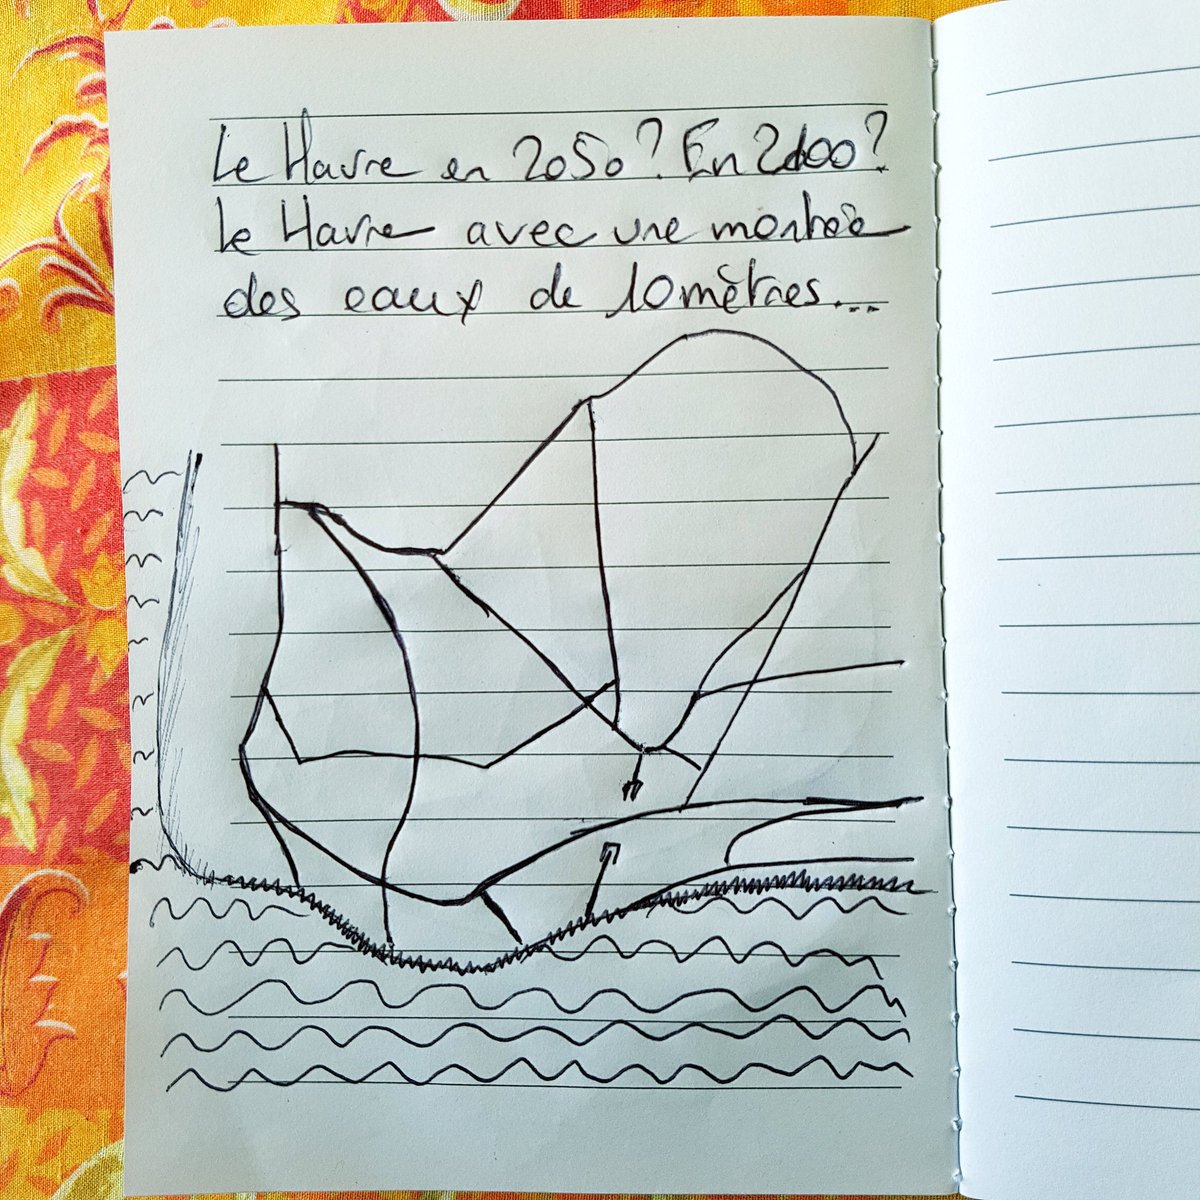 Le Havre en 2050? En 2100?
Le Havre avec une montée
des eaux de 10 mètres...